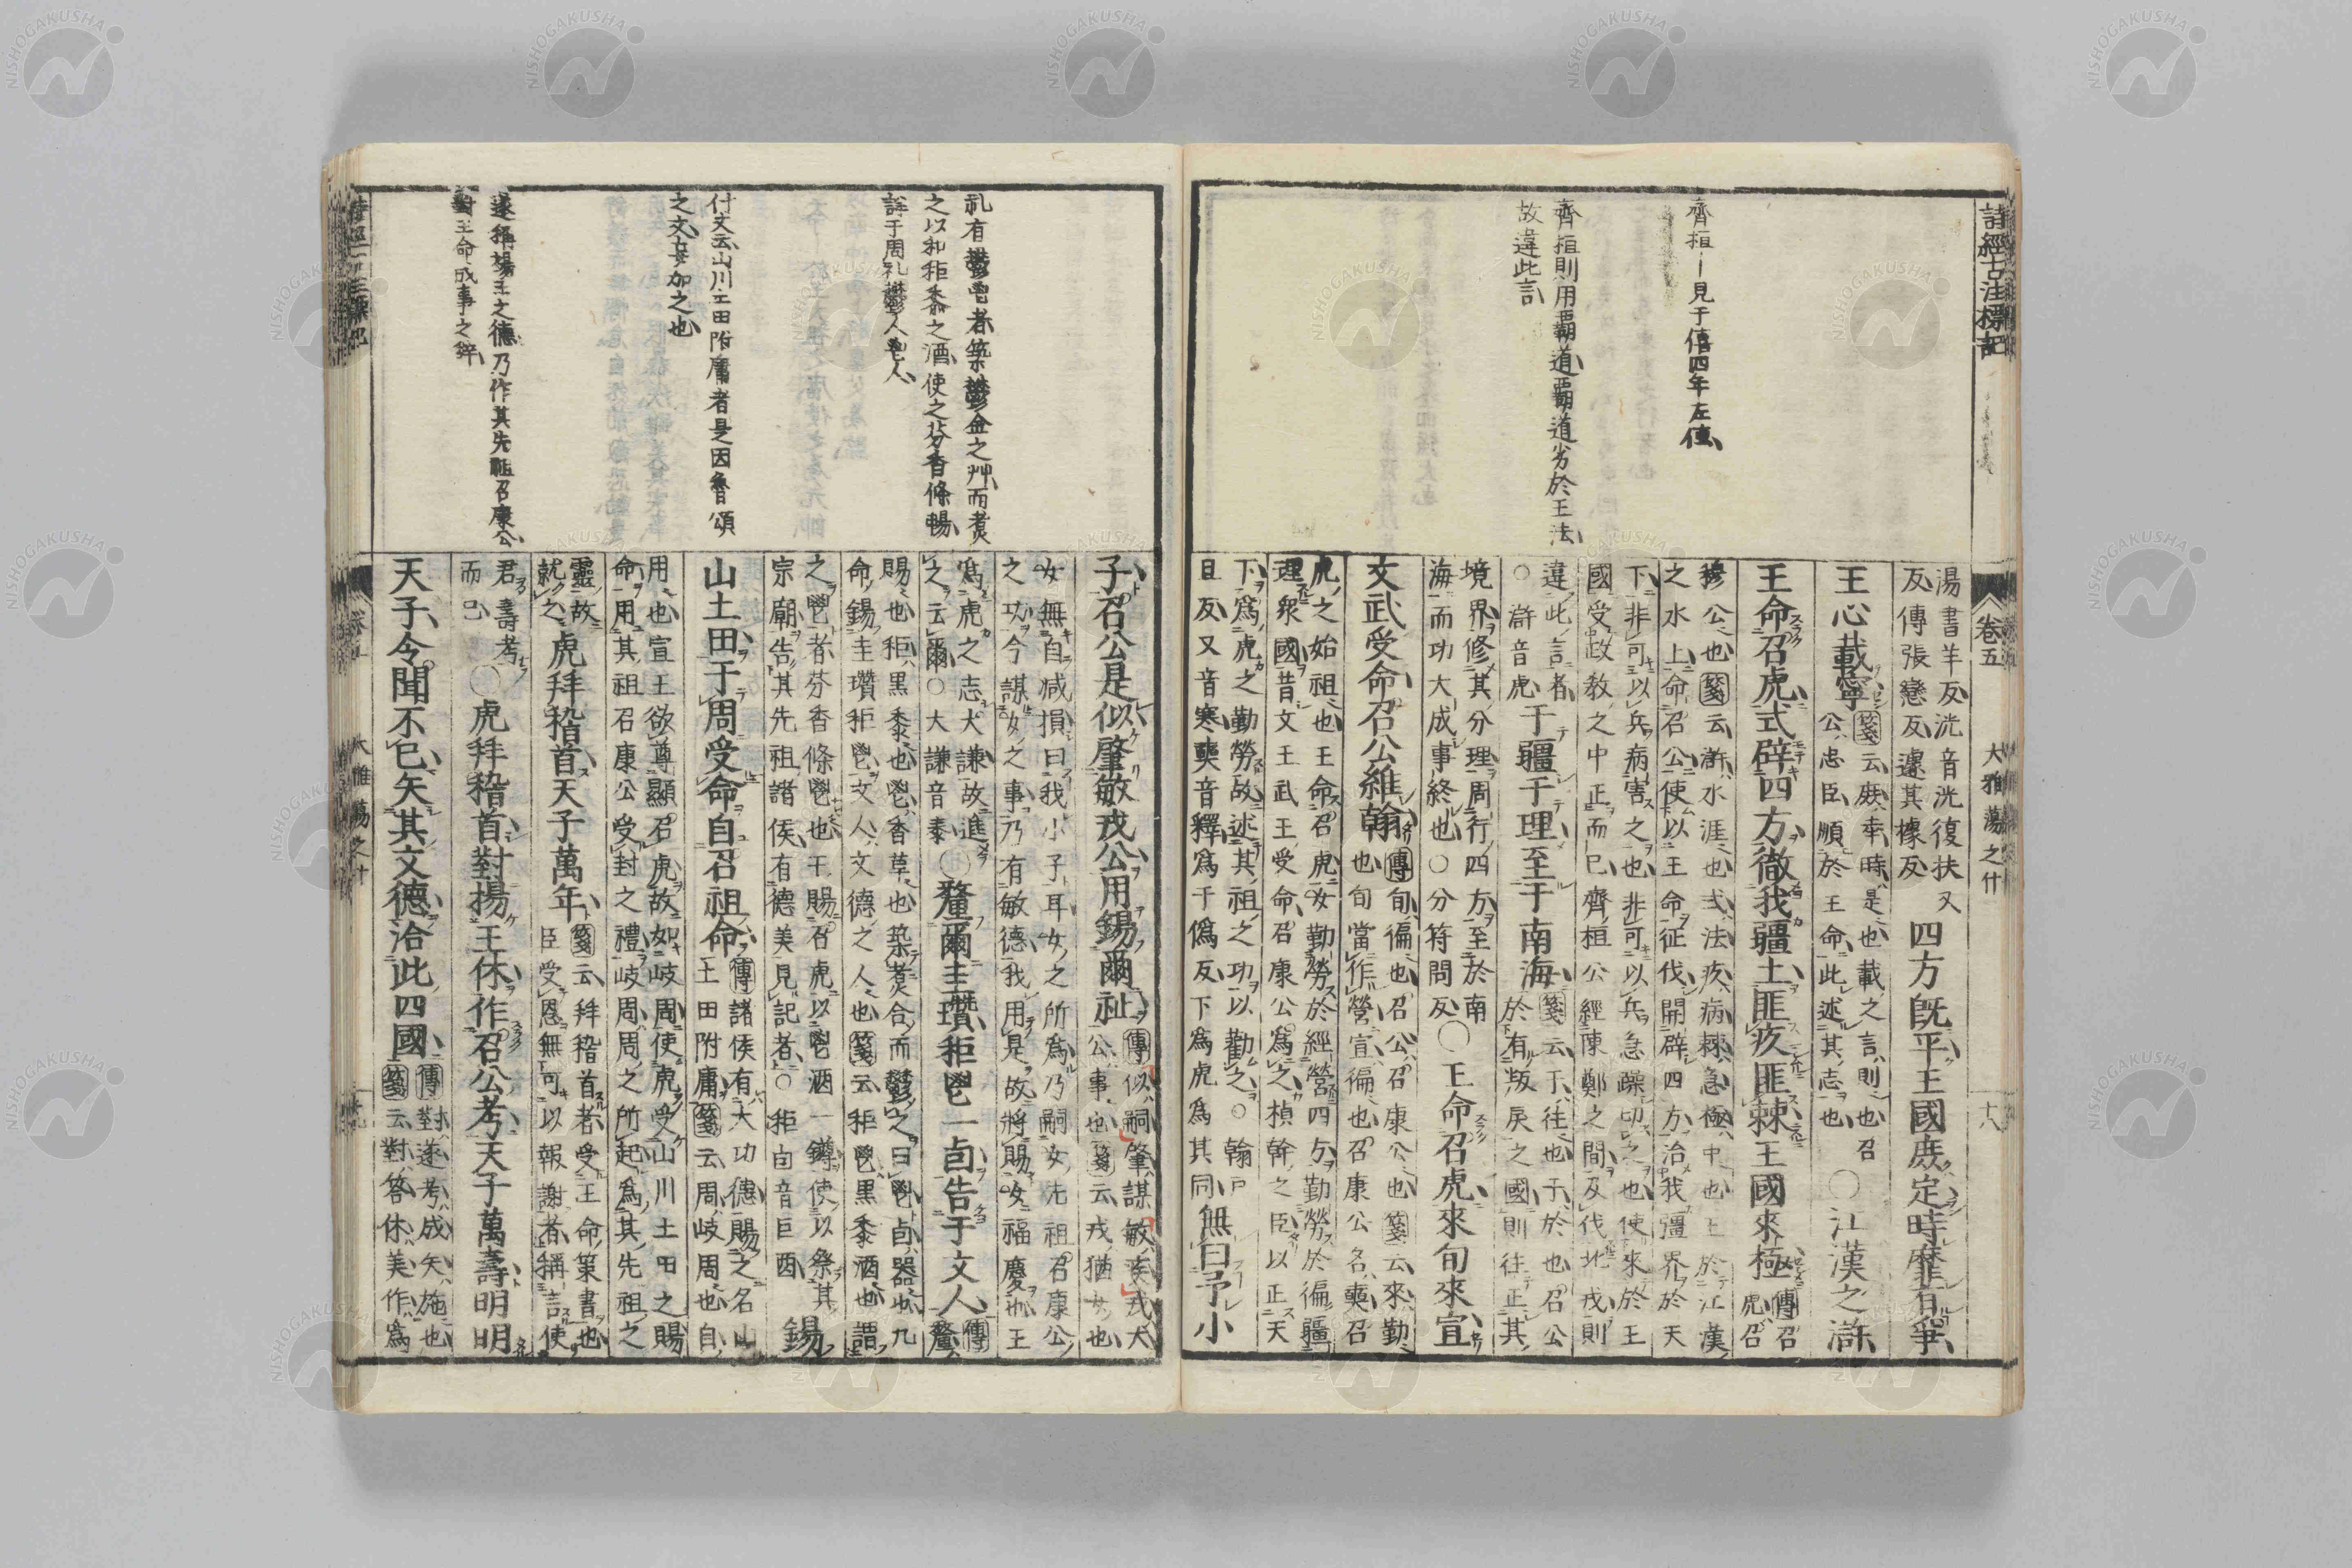 詩經古注標記
卷五
大雅蕩之什
十八
齊桓ー見于僖四年左傳
齊桓則用覇道覇道劣於王法
故違此言
湯書羊反洸音洸復扶又
反傳張戀反遽其據反
四方既平王國庶定時靡有爭
王心載寧
箋云庶幸時是也載之言則也召
公忠臣順於王命此述其志也
○江漢之滸
王命召虎式辟四方徹我疆土匪疚匪棘王國來極
傳召
虎召
穆公也箋云滸水涯也式法疚病棘急極中也王於江漢
之水上命召公使以王命征伐開辟四方治我疆界於天
下非可以兵病害之也非可以兵急躁切之也使來於王
國受政教之中正而已齊桓公經陳鄭之間及伐北戎則
違此言者
○滸音虎
于疆于理至于南海
箋云于往也于於也召公
於有叛戾之國則往正其
境界修其分理周行四方至於南
海而功大成事終也○分符問反
○王命召虎來旬來宣
文武受命召公維翰
傳旬徧也召公召康公也箋云來勤
也旬當作營宣徧也召康公名奭召
虎之始祖也王命召虎女勤勞於經營四方勤勞於徧疆
理衆國昔文王武王受命召康公爲之楨幹之臣以正天
下爲虎之勤勞故述其祖之功以勸之○翰戸
旦反又音寒奭音釋爲于僞反下爲虎爲其同
無曰予小
礼有鬱鬯者築鬱金之艸而煮
之以和秬黍之酒使之芬香條暢
詳于周礼鬱人鬯人
付文云山川土田附庸者是因魯頌
之文妄加之也
遂稱揚王之德乃作其先祖召康公
對王命成事之辞
子召公是似肇敏戎公用錫爾祉
傳似嗣肇謀敏疾戎大
公事也箋云戎猶女也
女無自减損曰我小子耳女之所爲乃嗣女先祖召康公
之功今謀女之事乃有敏德我用是故將賜女福慶也王
爲虎之志大謙故進
之云爾○大謙音泰
○釐爾圭瓚秬鬯一卣告于文人
傳
釐
賜也秬黒黍也鬯香草也築煮合而鬱之曰鬯卣器也九
命錫圭瓚秬鬯文人文德之人也箋云秬鬯黒黍酒也謂
之鬯者芬香條鬯也王賜召虎以鬯酒一罇使以祭其
宗廟告其先祖諸侯有德美見記者○秬卣音巨酉
錫
山土田于周受命自召祖命
傳諸侯有大功德賜之名山
土田附庸箋云周岐周也自
用也宣王欲尊顯召虎故如岐周使虎受山川土田之賜
命用其祖召康公受封之禮岐周周之所起爲其先祖之
靈故
就之
虎拜稽首天子萬年
箋云拜稽首者受王命策書也
臣受恩無可以報謝者稱言使
君壽考
而已
○虎拜稽首對揚王休作召公考天子萬壽明明
天子令聞不已矢其文德洽此四國
傳對遂考成矢施也
箋云對答休美作爲